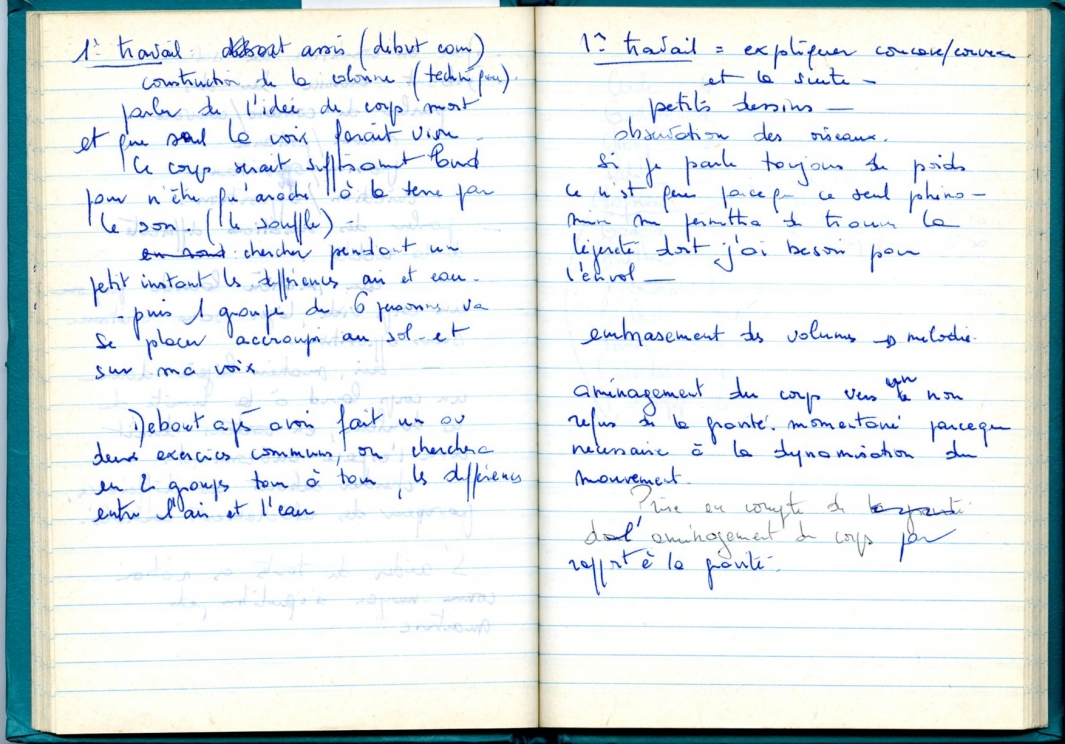 1er travail : debout assis (debut cours)
construction de la colonne (technique).
parler de l'idée de corps mort
et que seul la voix ferait vivre.
Ce corps serait suffisamment lourd
pour n'être qu'arraché à la terre par
le son. (le souffle) -
en sont : chercher pendant un
petit instant les différences air et eau.
- puis 1 groupe de 6 personnes va
se placer accroupi au sol et
sur ma voix
Debout après avoir fait un ou
deux exercices communs, on cherchera
en 2 groupes tour à tour, les différences
entre l'air et l'eau
1er travail = expliquer concave/convexe
et la suite -
petits dessins -
observation des oiseaux.
Si je parle toujours de poids
ce n'est que parce que ce seul phéno-
mène me permettra de trouver la
légèreté dont j'ai besoin pour
l'envol -
embrasement des volumes → mélodie.
aménagement du corps vers un non
refus de la gravité. momentané parceque
nécessaire à la dynamisation du
mouvement.
Prise en compte de la gravité
de l'aménagement du corps par
rapport à la gravité.